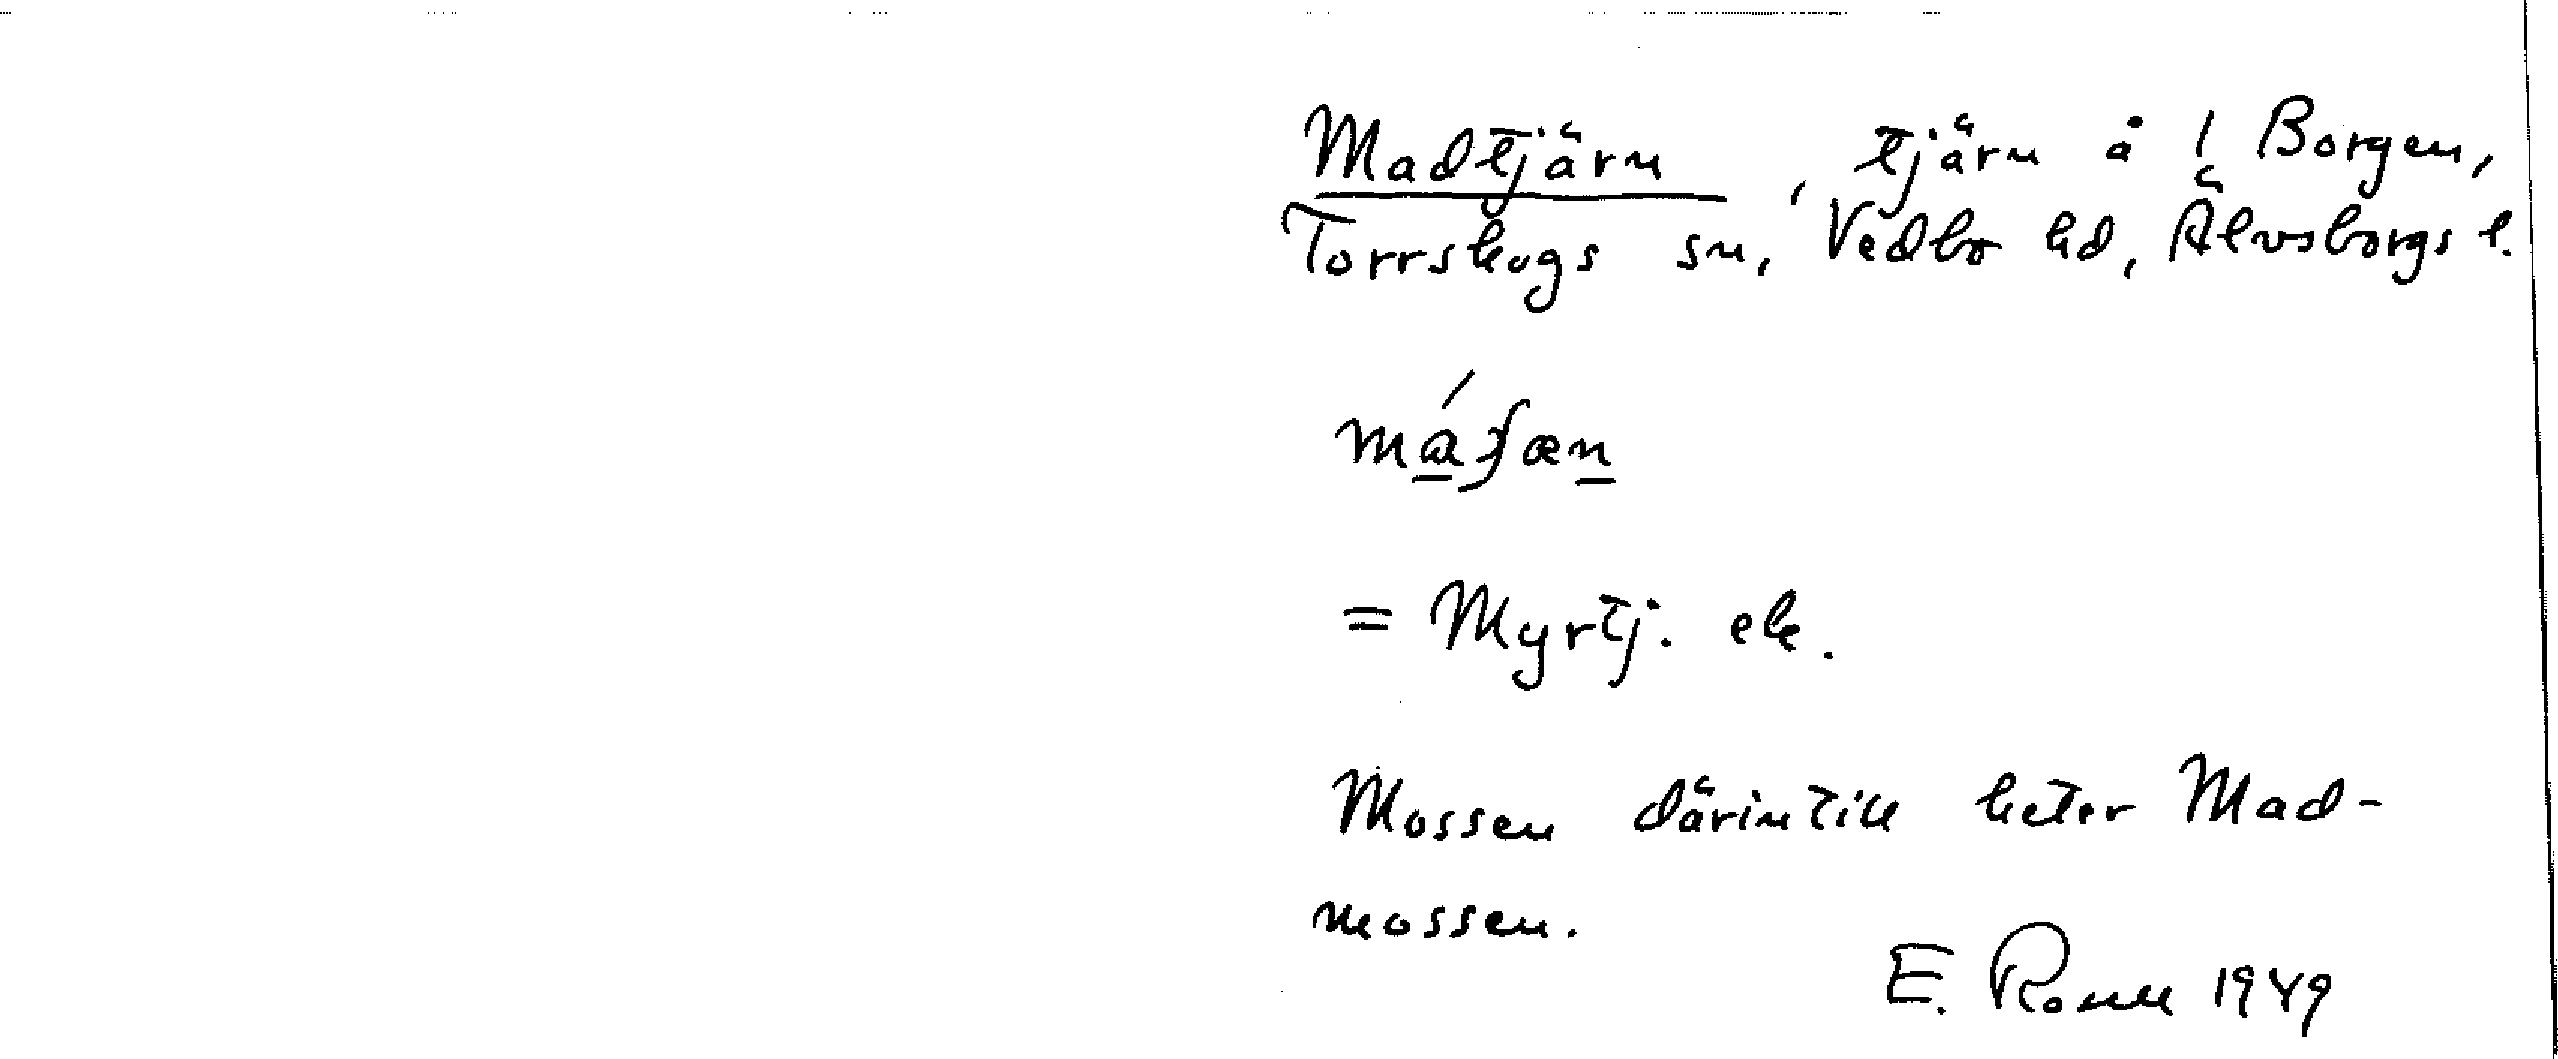 Madtjärn, tjärn å 1 Borgen,
Torrskogs sn, Vedbo hd, Älvsborgs l.
máʃæn
= Myrtj. ek.
Mossen därintill heter Mad-
mossen.
E. 1949